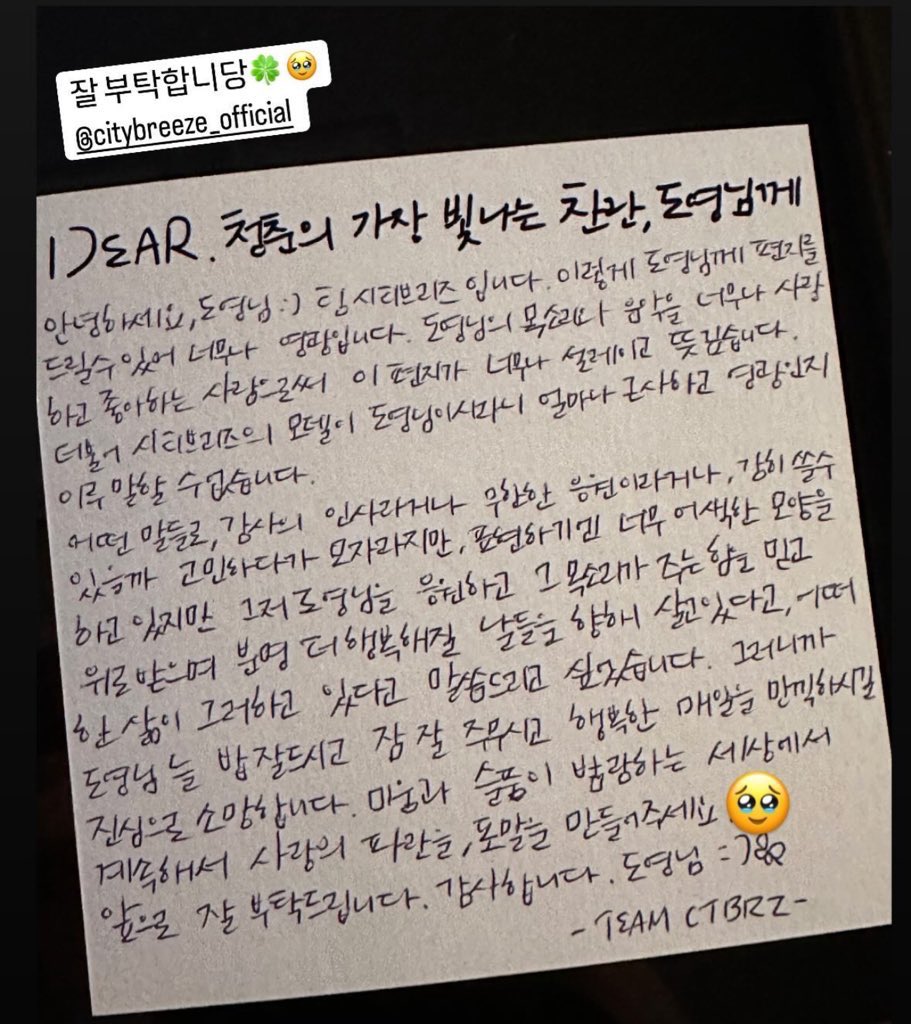 잘 부탁합니당🍀🥹
@citybreeze_official
DEAR. 청춘의 가장 빛나는 찬란, 도영님께
안녕하세요, 도영님 :) 팀 시티브리즈 입니다. 이렇게 도영님께 편지를
드릴수 있어 너무나 영광입니다. 도영님의 목소리와 음악을 너무나 사랑
하고 좋아하는 사람으로써 이 편지가 너무나 설레이고 뜻깊습니다.
더불어 시티브리즈의 모델이 도영님이시라니 얼마나 근사하고 영광인지
이루 말할 수 없습니다.
어떤 말들로, 감사의 인사라거나 무한한 응원이라거나, 감히 쓸수
있을까 고민하다가 모자라지만, 표현하기엔 너무 어색한 모양을
하고 있지만 그저 도영님을 응원하고 그 목소리가 주는 힘을 믿고
위로 받으며 분명 더 행복해질 날들을 향해 살고 있다고, 어떠
한 삶이 그러하고 있다고 말씀드리고 싶었습니다. 그러니까
도영님 늘 밥 잘드시고 잠 잘 주무시고 행복한 매일을 만끽하시길
진심으로 소망합니다. 미움과 슬픔이 범람하는 세상에서
계속해서 사랑의 파란을, 포말을 만들어주세요🥹
앞으로 잘 부탁드립니다. 감사합니다. 도영님 :)
-TEAM CTBRZ-